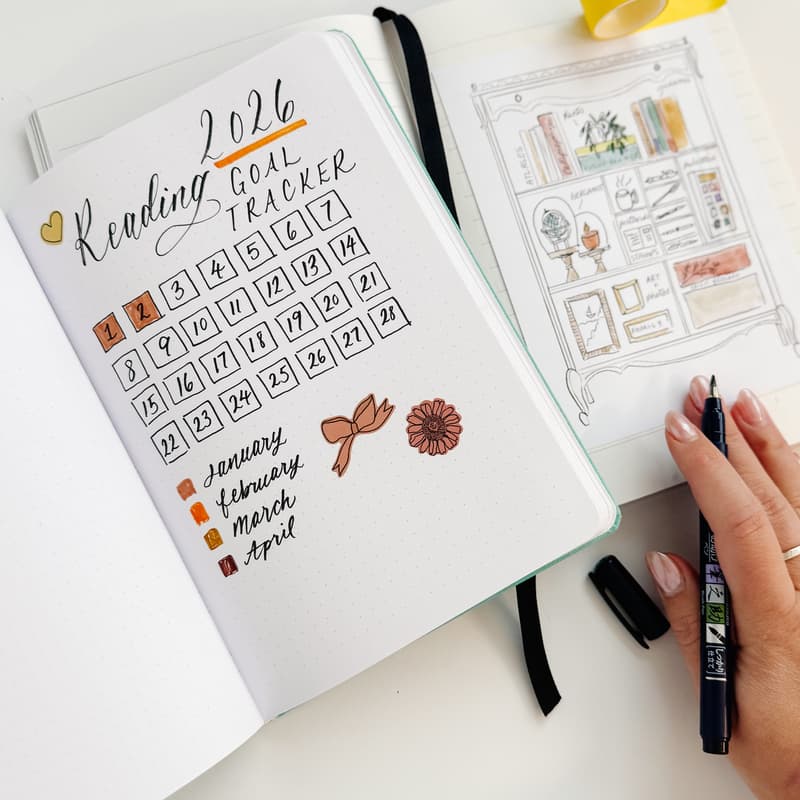 2026
Reading GOAL
TRACKER
1 2 3 4 5 6 7
8 9 10 11 12 13 14
15 16 17 18 19 20 21
22 23 24 25 26 27 28
January
february
March
April
ART +
photos
FAMILY